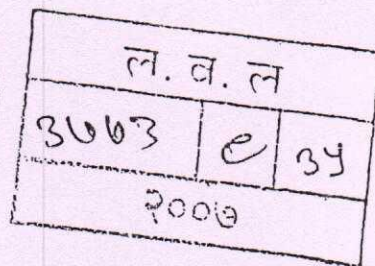 ल. व. ल
३७७३ ९ ३५
२००७